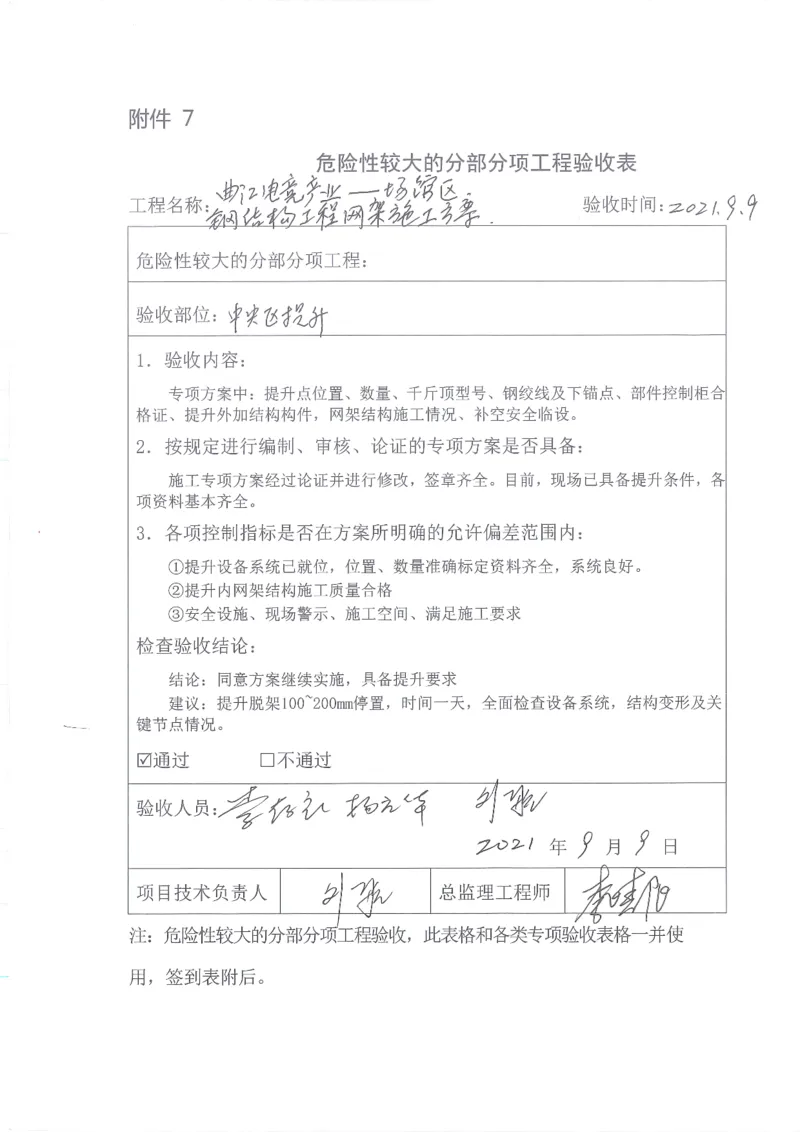 附件 7
危险性较大的分部分项工程验收表
工程名称：曲江电竞产业一场馆区
钢结构工程网架施工方案.
验收时间：2021.9.9
危险性较大的分部分项工程：
验收部位：中央区提升
1. 验收内容：
专项方案中：提升点位置、数量、千斤顶型号、钢绞线及下锚点、部件控制柜合
格证、提升外加结构构件，网架结构施工情况、补空安全临设。
2. 按规定进行编制、审核、论证的专项方案是否具备：
施工专项方案经过论证并进行修改，签章齐全。目前，现场已具备提升条件，各
项资料基本齐全。
3. 各项控制指标是否在方案所明确的允许偏差范围内：
①提升设备系统已就位，位置、数量准确标定资料齐全，系统良好。
②提升内网架结构施工质量合格
③安全设施、现场警示、施工空间、满足施工要求
检查验收结论：
结论：同意方案继续实施，具备提升要求
建议：提升脱架100~200mm停置，时间一天，全面检查设备系统，结构变形及关
键节点情况。
☑通过 □不通过
验收人员：
2021 年 9 月 9 日
项目技术负责人 总监理工程师
注：危险性较大的分部分项工程验收，此表格和各类专项验收表格一并使
用，签到表附后。